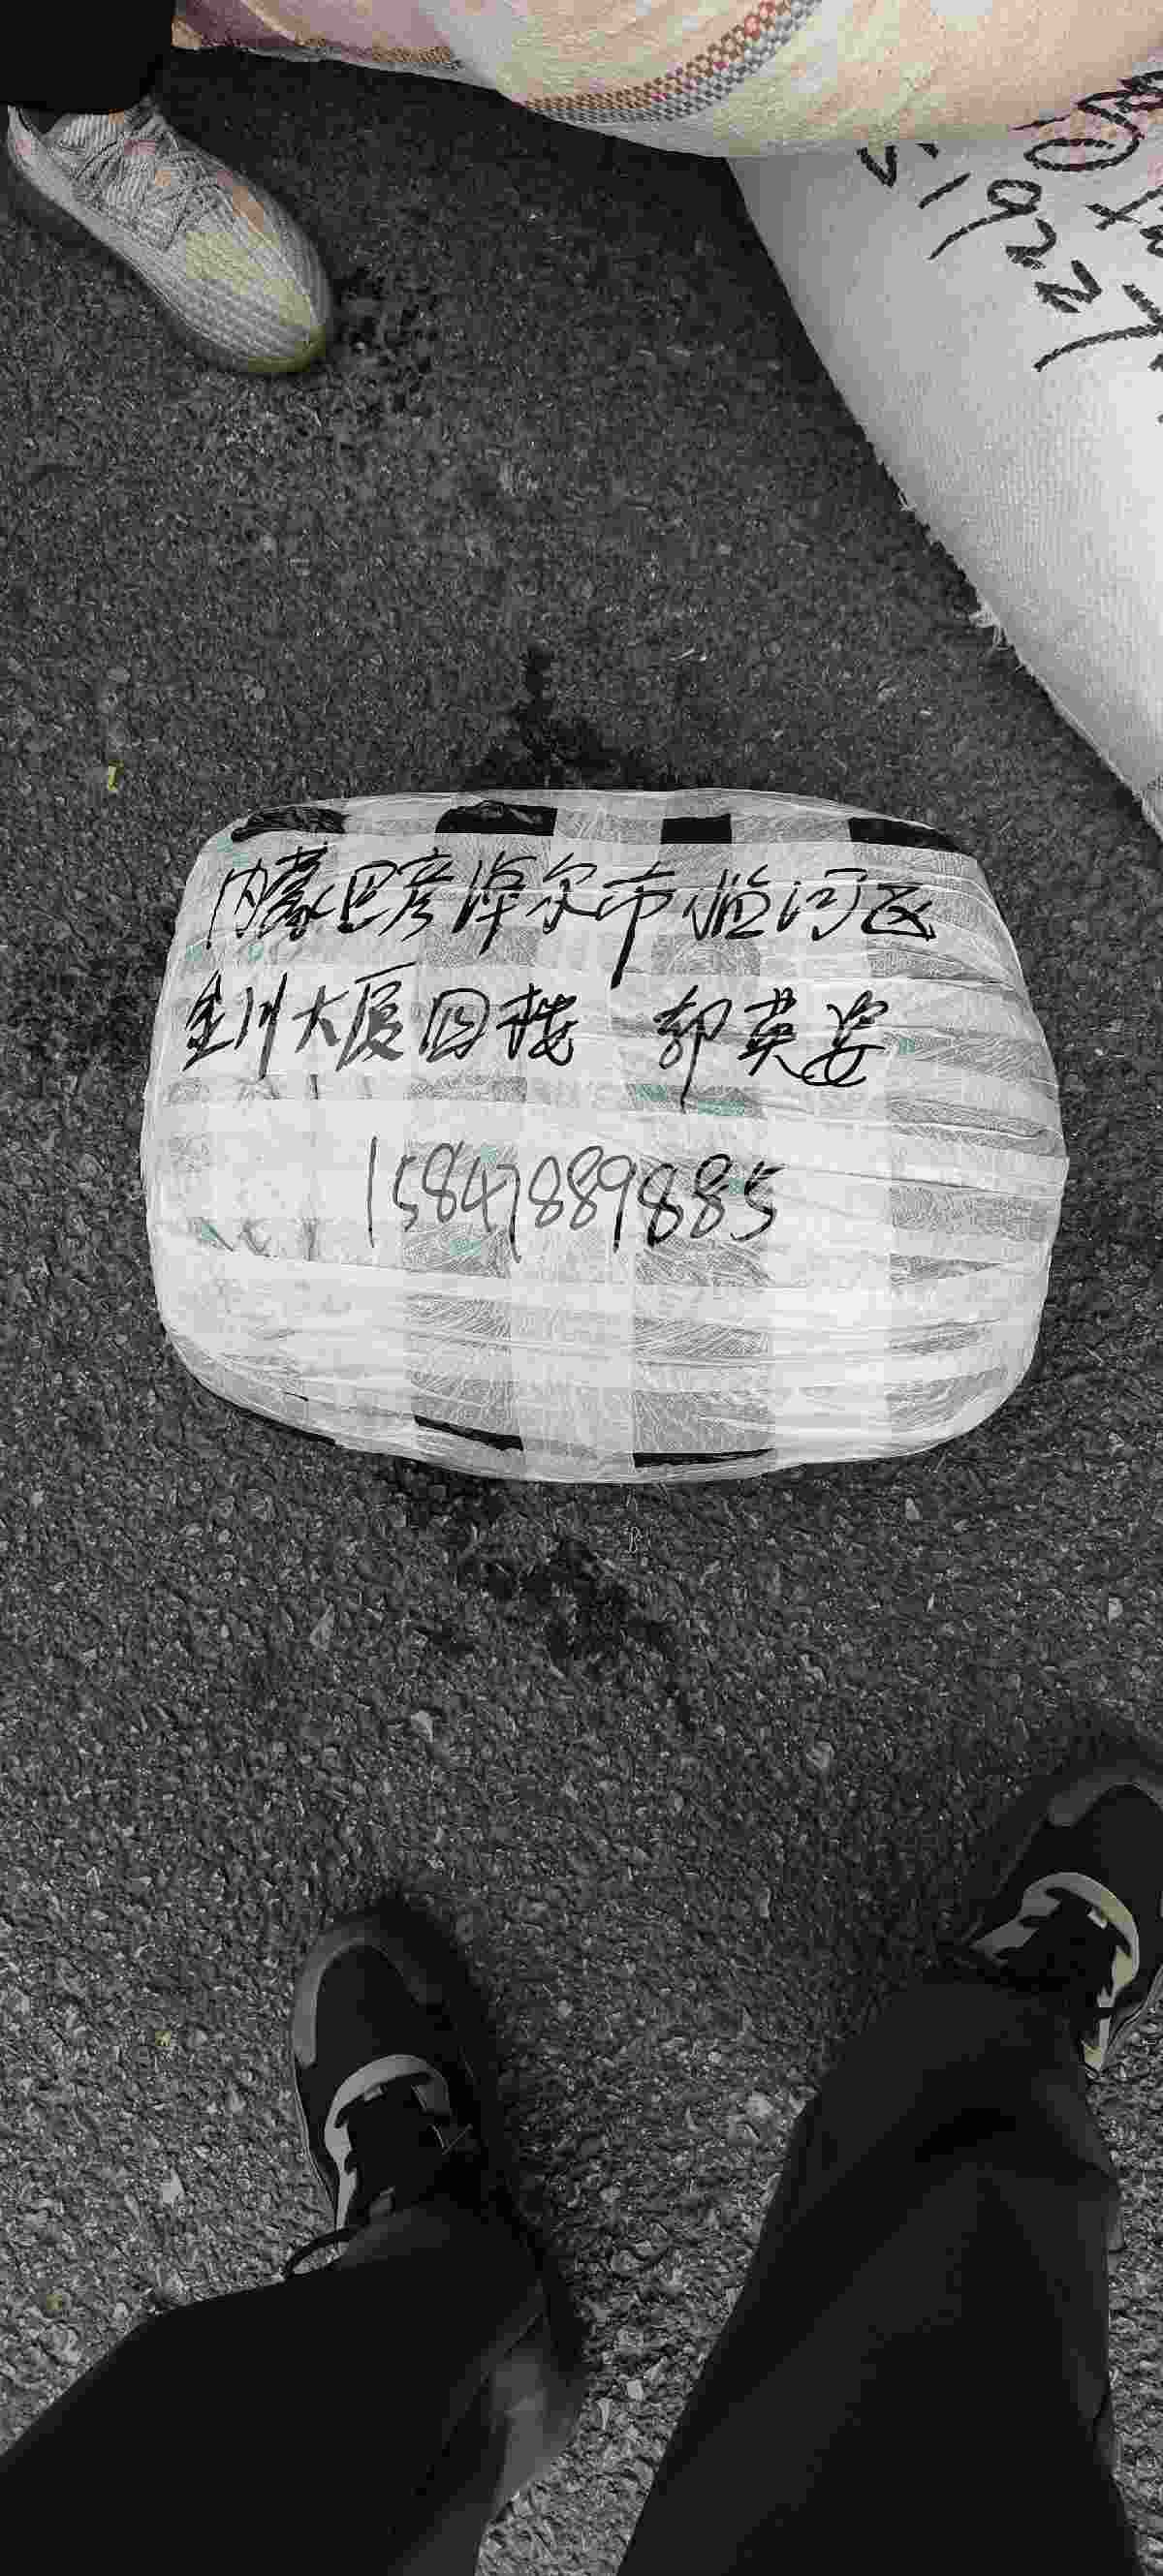 内蒙巴彦淖尔市临河区
金川大厦四楼 郭英姿
15847889885